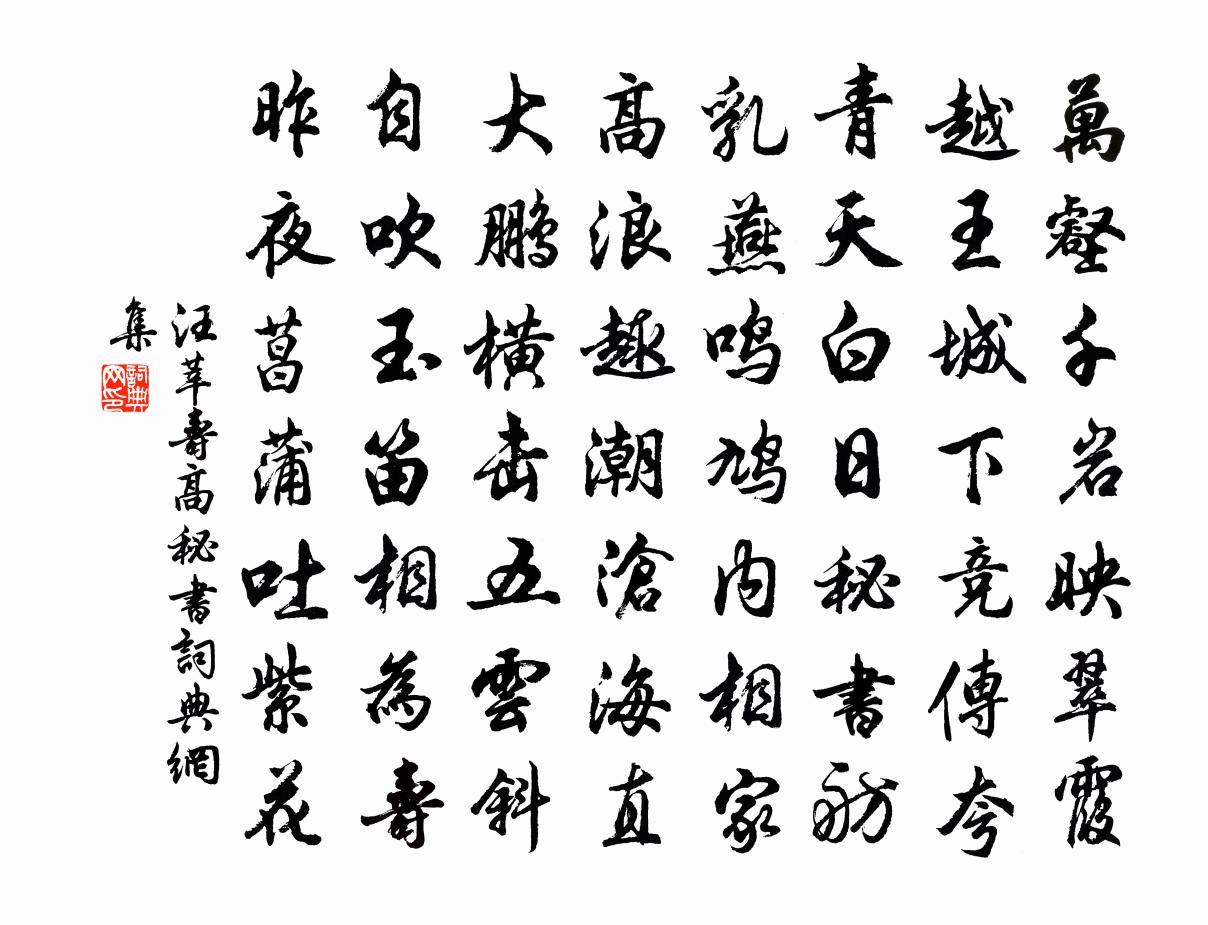 萬壑千岩映翠霞
越王城下竞傳夸
青天白日秘書舫
乳燕鸣鸠内相家
高浪趣潮滄海直
大鹏横击五雲斜
自吹玉笛相為壽
昨夜菖蒲吐紫花
汪莘壽高秘書詞典網
集
詞典
网印